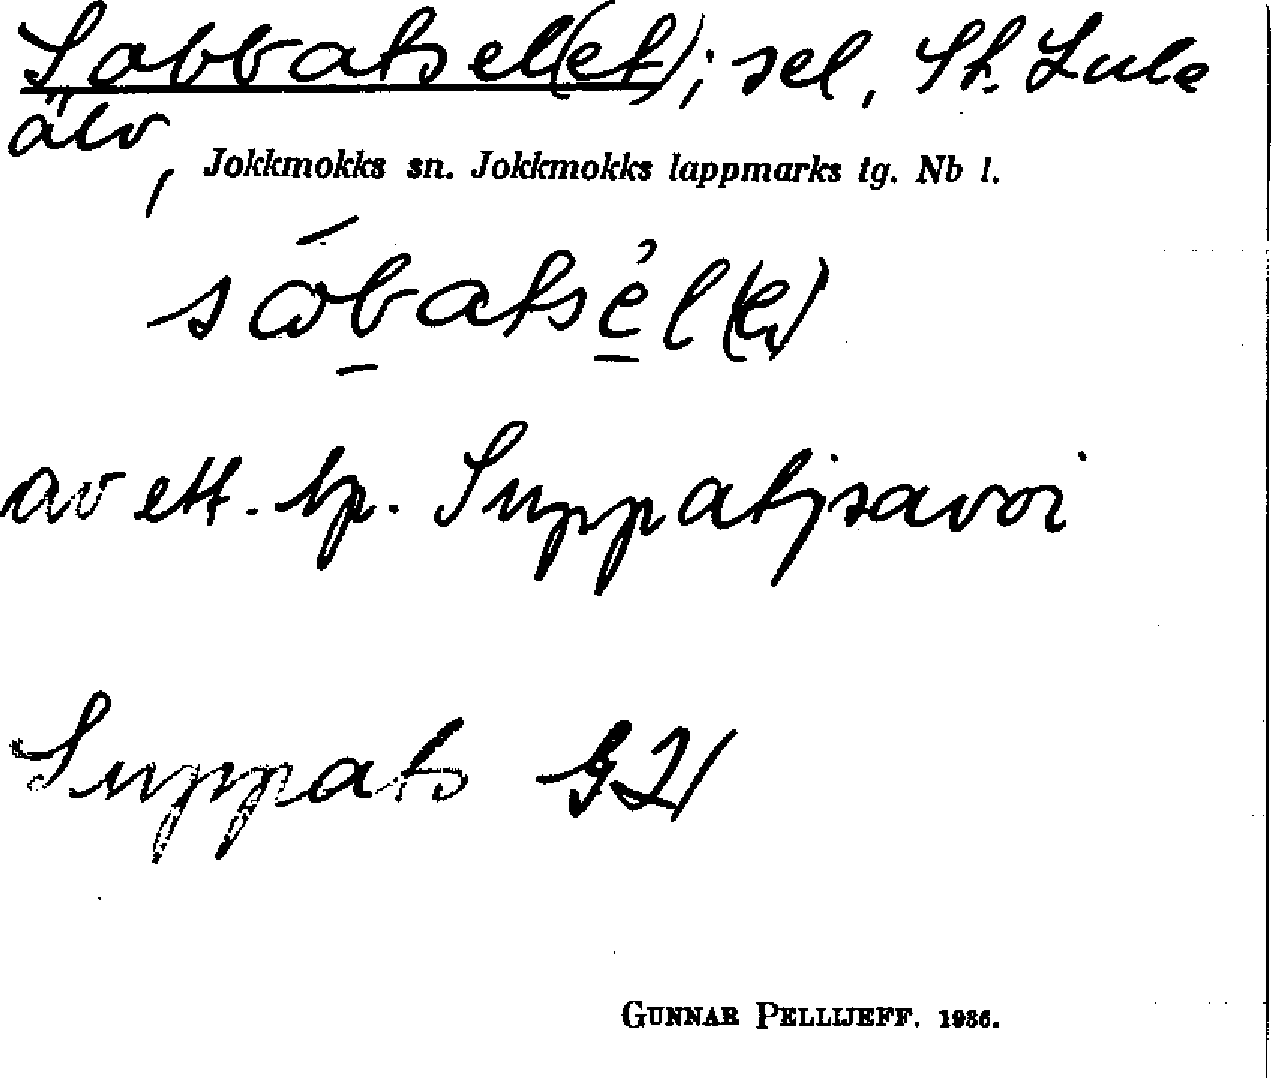 Sabbatsel(et); sel, St. Lule
älv,
Jokkmokks sn. Jokkmokks lappmarks tg. Nb l.
av ett. lp. Suppatjsavoi
Suppats G21
GUNNAR PELLIJEFF. 1936.